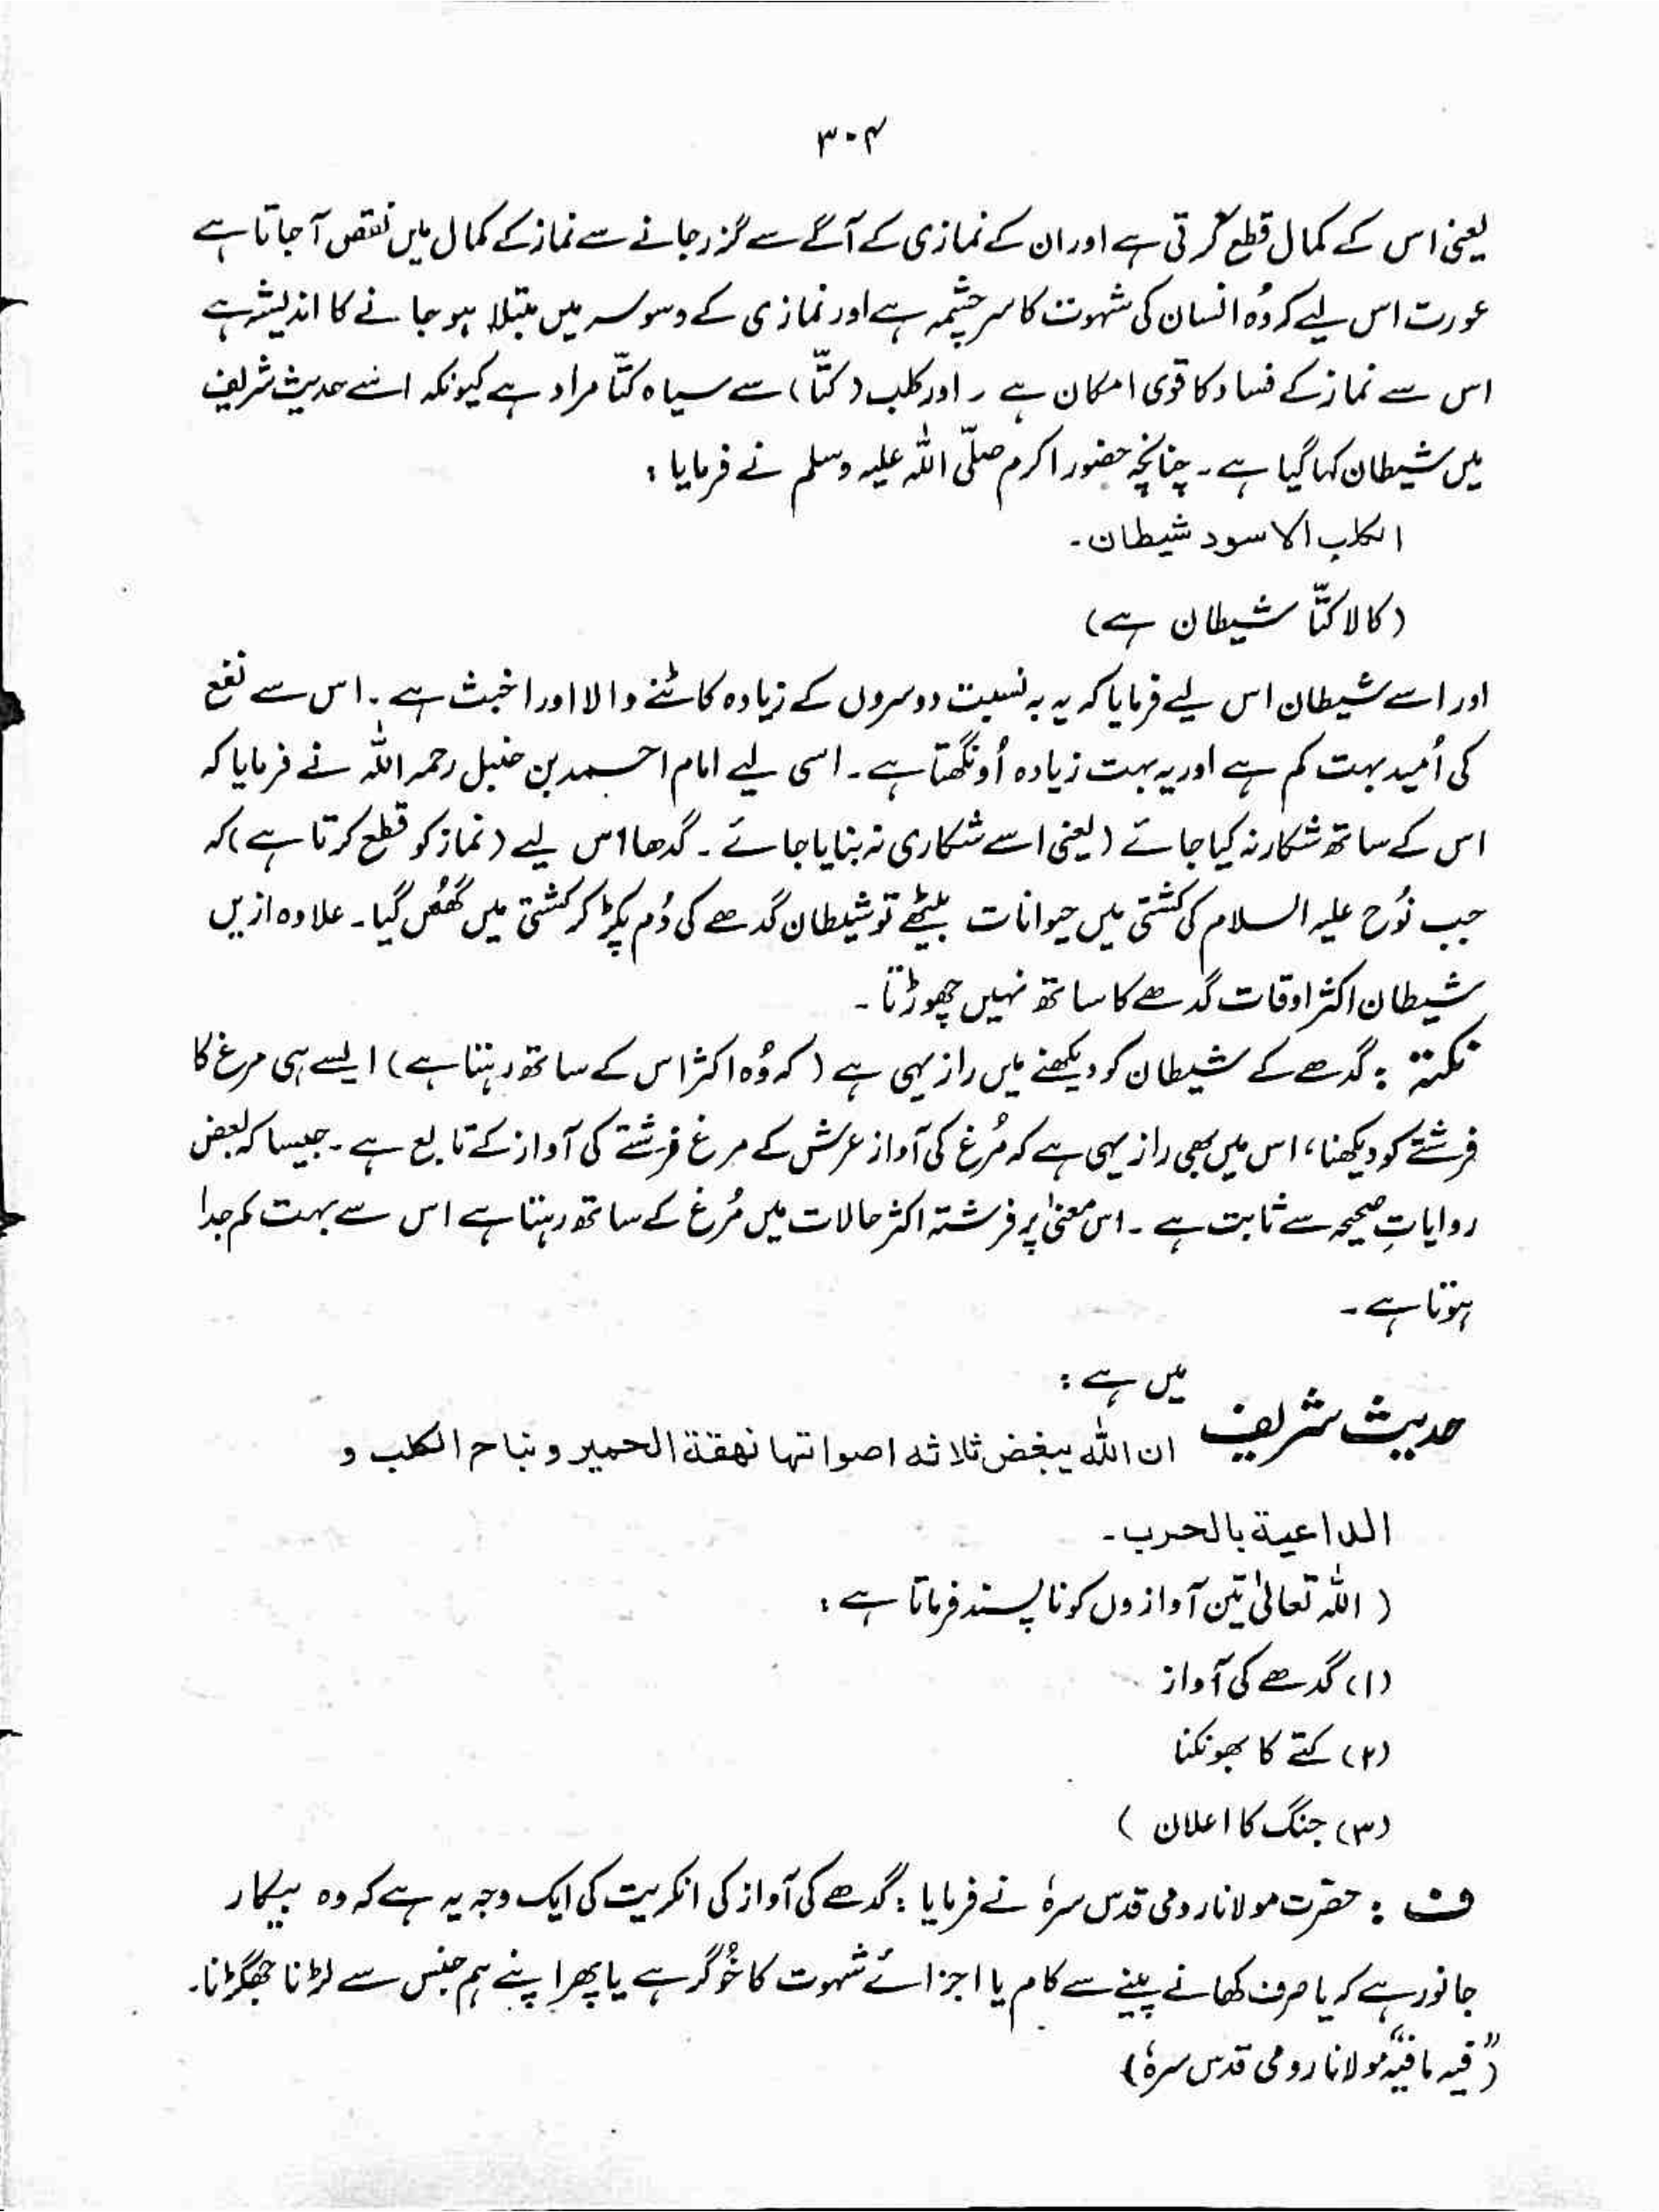 ۳۰۴
یعنی اس کے کمال قطع کرتی ہے اور ان کے نمازی کے آگے سے گزر جانے سے نماز کے کمال میں نقص آ جاتا ہے
عورت اس لیے کہ وُہ انسان کی شہوت کا سرچشمہ ہے اور نمازی کے وسوسہ میں مبتلا ہو جانے کا اندیشہ ہے
اس سے نماز کے فساد کا قوی امکان ہے ۔ اور کلب (کتّا) سے سیاہ کتّا مراد ہے کیونکہ اسے حدیث شریف
میں شیطان کہا گیا ہے ۔ چنانچہ حضور اکرم صلّی اللہ علیہ وسلم نے فرمایا :
الکلب الاسود شیطان ۔
(کالا کتّا شیطان ہے)
اور اسے شیطان اس لیے فرمایا کہ یہ بہ نسبت دوسروں کے زیادہ کاٹنے والا اور اخبث ہے ۔ اس سے نفع
کی اُمید بہت کم ہے اور یہ بہت زیادہ اُونگھتا ہے ۔ اسی لیے امام احمد بن حنبل رحمہ اللہ نے فرمایا کہ
اس کے ساتھ شکار نہ کیا جائے (یعنی اسے شکاری نہ بنایا جائے ۔ گدھا اس لیے (نماز کو قطع کرتا ہے) کہ
جب نُوح علیہ السلام کی کشتی میں حیوانات بیٹھے تو شیطان گدھے کی دُم پکڑ کر کشتی میں گھُس گیا ۔ علاوہ ازیں
شیطان اکثر اوقات گدھے کا ساتھ نہیں چھوڑتا ۔
نکتہ : گدھے کے شیطان کو دیکھنے میں راز یہی ہے (کہ وُہ اکثر اس کے ساتھ رہتا ہے) ایسے ہی مرغ کا
فرشتے کو دیکھنا ، اس میں بھی راز یہی ہے کہ مُرغ کی آواز عرش کے مرغ فرشتے کی آواز کے تابع ہے ۔ جیسا کہ بعض
روایاتِ صحیحہ سے ثابت ہے ۔ اس معنیٰ پر فرشتہ اکثر حالات میں مُرغ کے ساتھ رہتا ہے اس سے بہت کم جدا
ہوتا ہے ۔
حدیث شریف میں ہے :
ان اللہ یبغض ثلاثہ اصواتہا نھقة الحمیر و نباح الکلب و
الداعیة بالحرب ۔
( اللہ تعالیٰ تین آوازوں کو ناپسند فرماتا ہے :
(۱) گدھے کی آواز
(۲) کتے کا بھونکنا
(۳) جنگ کا اعلان )
ف : حضرت مولانا رومی قدس سرہٗ نے فرمایا : گدھے کی آواز کی انکریت کی ایک وجہ یہ ہے کہ وہ بیکار
جانور ہے کہ یا صرف کھانے پینے سے کام یا اجزائے شہوت کا خُوگر ہے یا پھر اپنے ہم جنس سے لڑنا جھگڑنا ۔
("فیہ ما فیہ" مولانا رومی قدس سرہٗ)